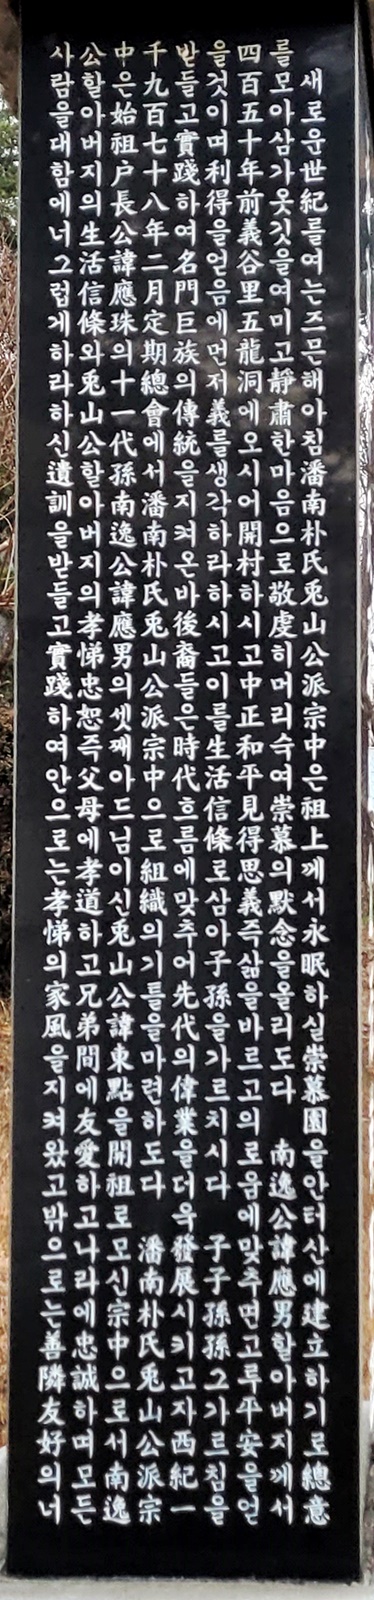 새로운世紀를여는즈믄해아침潘南朴氏兎山公派宗中은祖上께서永眠하실崇慕園을안터산에建立하기로總意
를모아삼가옷깃을여미고靜肅한마음으로敬虔히머리숙여崇慕의默念을올리도다 南逸公諱應男할아버지께서
四百五十年前義谷里五龍洞에오시어開村하시고中正和平見得思義즉삶을바르고의로움에맞추면고루平安을얻
을것이며利得을얻음에먼저義를생각하라하시고이를生活信條로삼아子孫을가르치시다 子子孫孫그가르침을
받들고實踐하여名門巨族의傳統을지켜온바後裔들은時代흐름에맞추어先代의偉業을더욱發展시키고자西紀一
千九百七十八年二月定期總會에서潘南朴氏兎山公派宗中으로組織의기틀을마련하도다 潘南朴氏兎山公派宗
中은始祖戶長公諱應珠의十一代孫南逸公諱應男의셋째아드님이신兎山公諱東點을開祖로모신宗中으로서南逸
公할아버지의生活信條와兎山公할아버지의孝悌忠恕즉父母에孝道하고兄弟間에友愛하고나라에忠誠하며모든
사람을대함에너그럽게하라하신遺訓을받들고實踐하여안으로는孝悌의家風을지켜왔고밖으로는善隣友好의너